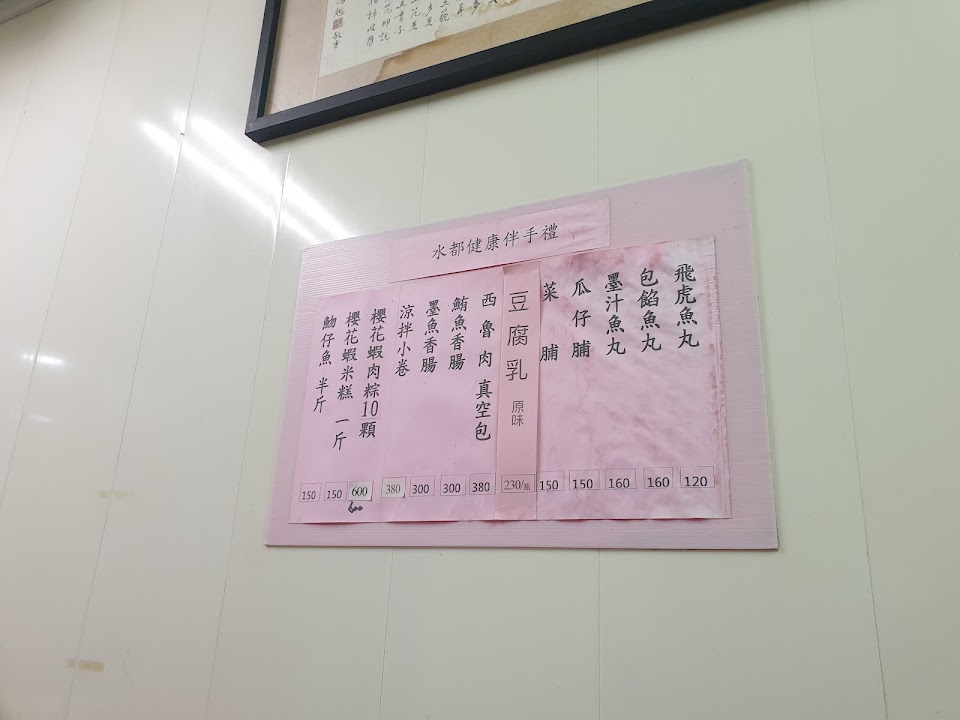 水都健康伴手禮
飛虎魚丸 120
包餡魚丸 160
墨汁魚丸 160
瓜仔脯 150
菜脯 150
豆腐乳 原味 230/瓶
西魯肉真空包 380
鮪魚香腸 300
墨魚香腸 300
涼拌小卷 380
櫻花蝦肉粽10顆 600
600
櫻花蝦米糕 一斤 150
魩仔魚 半斤 150